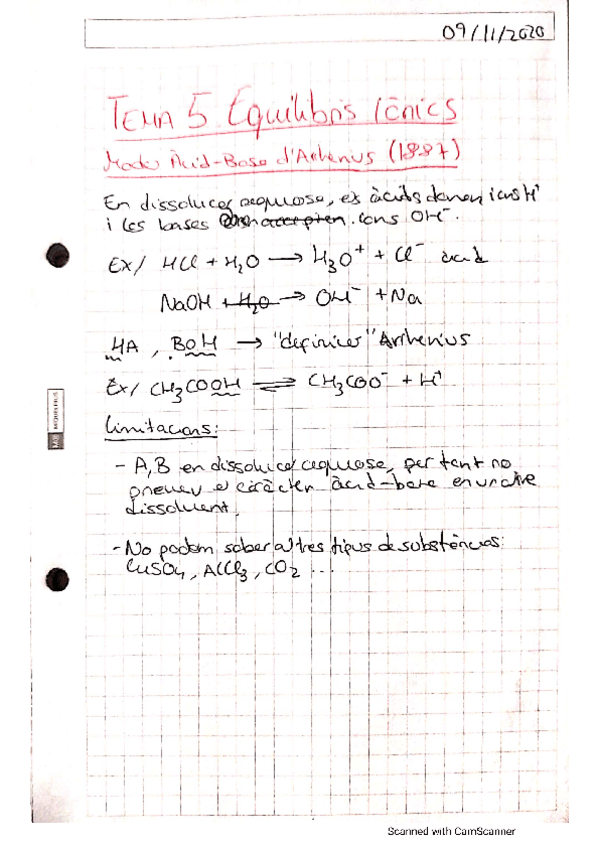 09/11/2020
TEMA 5 Equilibris iònics
Model Àcid-Base d'Arrhenius (1887)
En dissolució aquosa, els àcids donen ions H⁺
i les bases accepten ions OH⁻.
Ex/ HCl + H₂O → H₃O⁺ + Cl⁻ àcid
NaOH + H₂O → OH⁻ + Na
HA, BOH → "definició" Arrhenius
Ex/ CH₃COOH ⇌ CH₃COO⁻ + H⁺
Limitacions:
- A,B en dissolució aquosa, per tant no
preveu el caràcter àcid-base en un altre
dissolvent,
- No podem saber altres tipus de substàncies:
CuSO₄, AlCl₃, CO₂ ...
MIQUELRIUS
Scanned with CamScanner